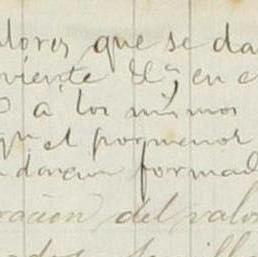 alores que se da
viente &c, en e
á los mismos
que el pormenor
daran formad
ración del valor